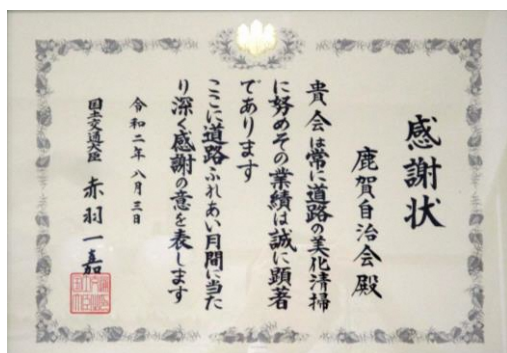 感謝状
鹿賀自治会殿
貴会は常に道路の美化清掃
に努めその業績は誠に顕著
であります
ここに道路ふれあい月間に当た
り深く感謝の意を表します
令和二年八月三日
国土交通大臣 赤羽一嘉